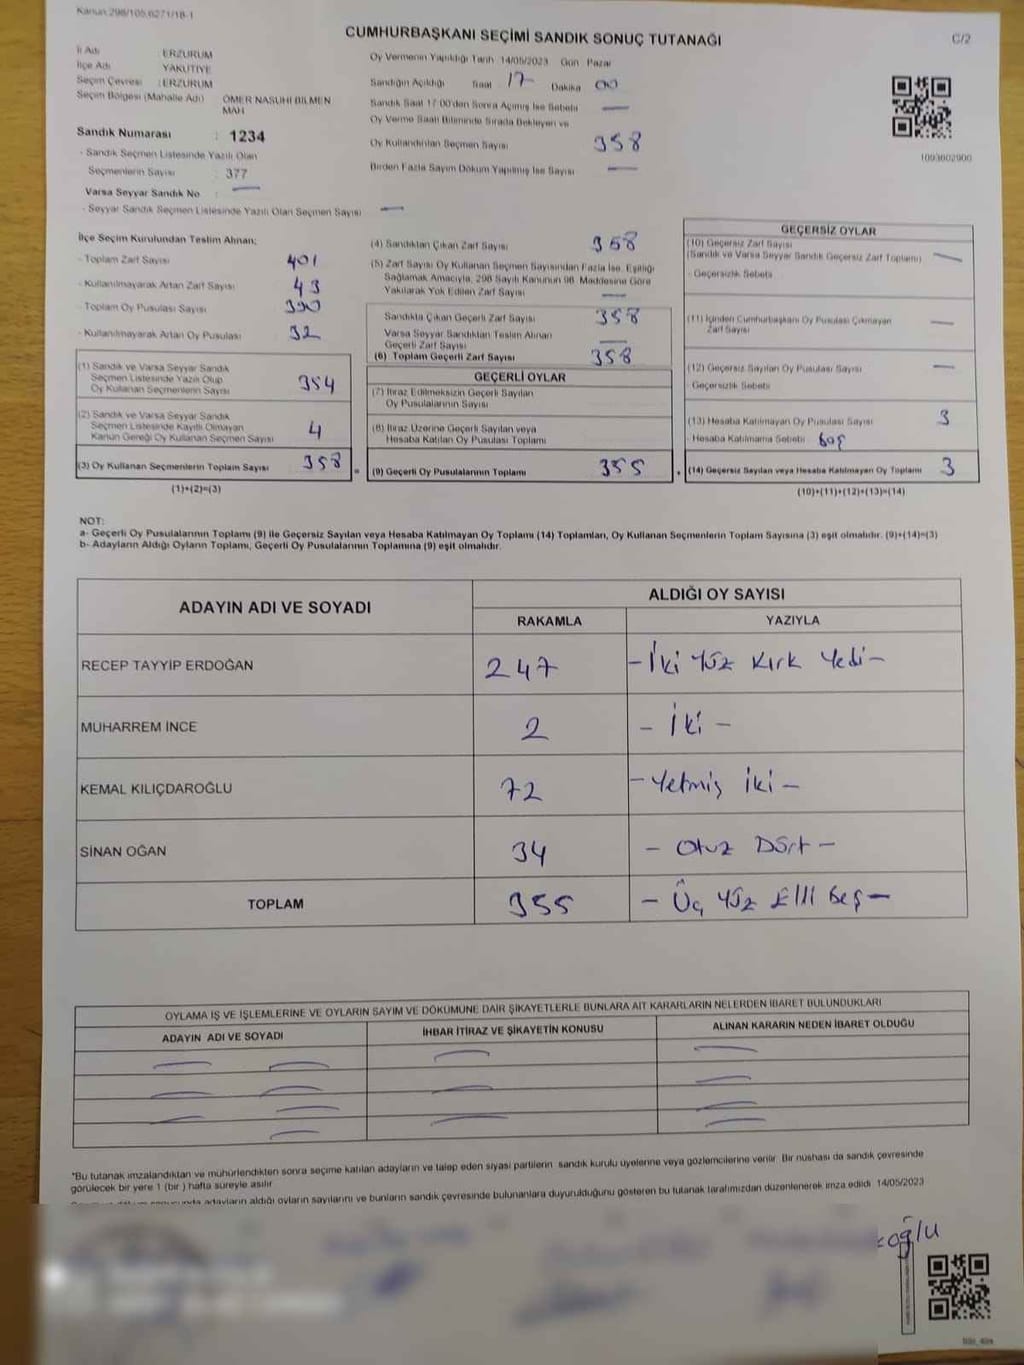 Kanun 298/105,6271/18-1
CUMHURBAŞKANI SEÇİMİ SANDIK SONUÇ TUTANAĞI
C/2
İl Adı : ERZURUM
İlçe Adı YAKUTİYE
Seçim Çevresi : ERZURUM
Seçim Bölgesi (Mahalle Adı) ÖMER NASUHİ BİLMEN
MAH
Sandık Numarası : 1234
- Sandık Seçmen Listesinde Yazılı Olan
Seçmenlerin Sayısı : 377
Varsa Seyyar Sandık No : —
- Seyyar Sandık Seçmen Listesinde Yazılı Olan Seçmen Sayısı —
Oy Vermenin Yapıldığı Tarih 14/05/2023 Gün Pazar
Sandığın Açıldığı Saat 17 Dakika 00
Sandık Saat 17:00'den Sonra Açılmış İse Sebebi —
Oy Verme Saati Bitiminde Sırada Bekleyen ve
Oy Kullandırılan Seçmen Sayısı 358
Birden Fazla Sayım Döküm Yapılmış İse Sayısı —
1093602900
İlçe Seçim Kurulundan Teslim Alınan;
- Toplam Zarf Sayısı 401
- Kullanılmayarak Artan Zarf Sayısı 43
- Toplam Oy Pusulası Sayısı 390
- Kullanılmayarak Artan Oy Pusulası 32
(1) Sandık ve Varsa Seyyar Sandık
Seçmen Listesinde Yazılı Olup
Oy Kullanan Seçmenlerin Sayısı 354
(2) Sandık ve Varsa Seyyar Sandık
Seçmen Listesinde Kayıtlı Olmayan
Kanun Gereği Oy Kullanan Seçmen Sayısı 4
(3) Oy Kullanan Seçmenlerin Toplam Sayısı 358
(1)+(2)=(3)
(4) Sandıktan Çıkan Zarf Sayısı 358
(5) Zarf Sayısı Oy Kullanan Seçmen Sayısından Fazla İse, Eşitliği
Sağlamak Amacıyla, 298 Sayılı Kanunun 98. Maddesine Göre
Yakılarak Yok Edilen Zarf Sayısı —
Sandıkta Çıkan Geçerli Zarf Sayısı 358
Varsa Seyyar Sandıktan Teslim Alınan
Geçerli Zarf Sayısı —
(6) Toplam Geçerli Zarf Sayısı 358
GEÇERLİ OYLAR
(7) İtiraz Edilmeksizin Geçerli Sayılan
Oy Pusulalarının Sayısı
(8) İtiraz Üzerine Geçerli Sayılan veya
Hesaba Katılan Oy Pusulası Toplamı
= (9) Geçerli Oy Pusulalarının Toplamı 355
GEÇERSİZ OYLAR
(10) Geçersiz Zarf Sayısı
(Sandık ve Varsa Seyyar Sandık Geçersiz Zarf Toplamı) —
- Geçersizlik Sebebi
(11) İçinden Cumhurbaşkanı Oy Pusulası Çıkmayan
Zarf Sayısı —
(12) Geçersiz Sayılan Oy Pusulası Sayısı —
- Geçersizlik Sebebi
(13) Hesaba Katılmayan Oy Pusulası Sayısı 3
- Hesaba Katılmama Sebebi boş
+ (14) Geçersiz Sayılan veya Hesaba Katılmayan Oy Toplamı 3
(10)+(11)+(12)+(13)=(14)
NOT:
a- Geçerli Oy Pusulalarının Toplamı (9) ile Geçersiz Sayılan veya Hesaba Katılmayan Oy Toplamı (14) Toplamları, Oy Kullanan Seçmenlerin Toplam Sayısına (3) eşit olmalıdır. (9)+(14)=(3)
b- Adayların Aldığı Oyların Toplamı, Geçerli Oy Pusulalarının Toplamına (9) eşit olmalıdır.
ADAYIN ADI VE SOYADI
ALDIĞI OY SAYISI
RAKAMLA YAZIYLA
RECEP TAYYİP ERDOĞAN 247 - İki Yüz Kırk Yedi -
MUHARREM İNCE 2 - İki -
KEMAL KILIÇDAROĞLU 72 - Yetmiş İki -
SİNAN OĞAN 34 - Otuz Dört -
TOPLAM 355 - Üç Yüz Elli Beş -
OYLAMA İŞ VE İŞLEMLERİNE VE OYLARIN SAYIM VE DÖKÜMÜNE DAİR ŞİKAYETLERLE BUNLARA AİT KARARLARIN NELERDEN İBARET BULUNDUKLARI
ADAYIN ADI VE SOYADI İHBAR İTİRAZ VE ŞİKAYETİN KONUSU ALINAN KARARIN NEDEN İBARET OLDUĞU
*Bu tutanak imzalandıktan ve mühürlendikten sonra seçime katılan adayların ve talep eden siyasi partilerin sandık kurulu üyelerine veya gözlemcilerine verilir. Bir nüshası da sandık çevresinde
görülecek bir yere 1 (bir) hafta süreyle asılır.
adayların aldığı oyların sayılarını ve bunların sandık çevresinde bulunanlara duyurulduğunu gösteren bu tutanak tarafımızdan düzenlenerek imza edildi. 14/05/2023
oğlu